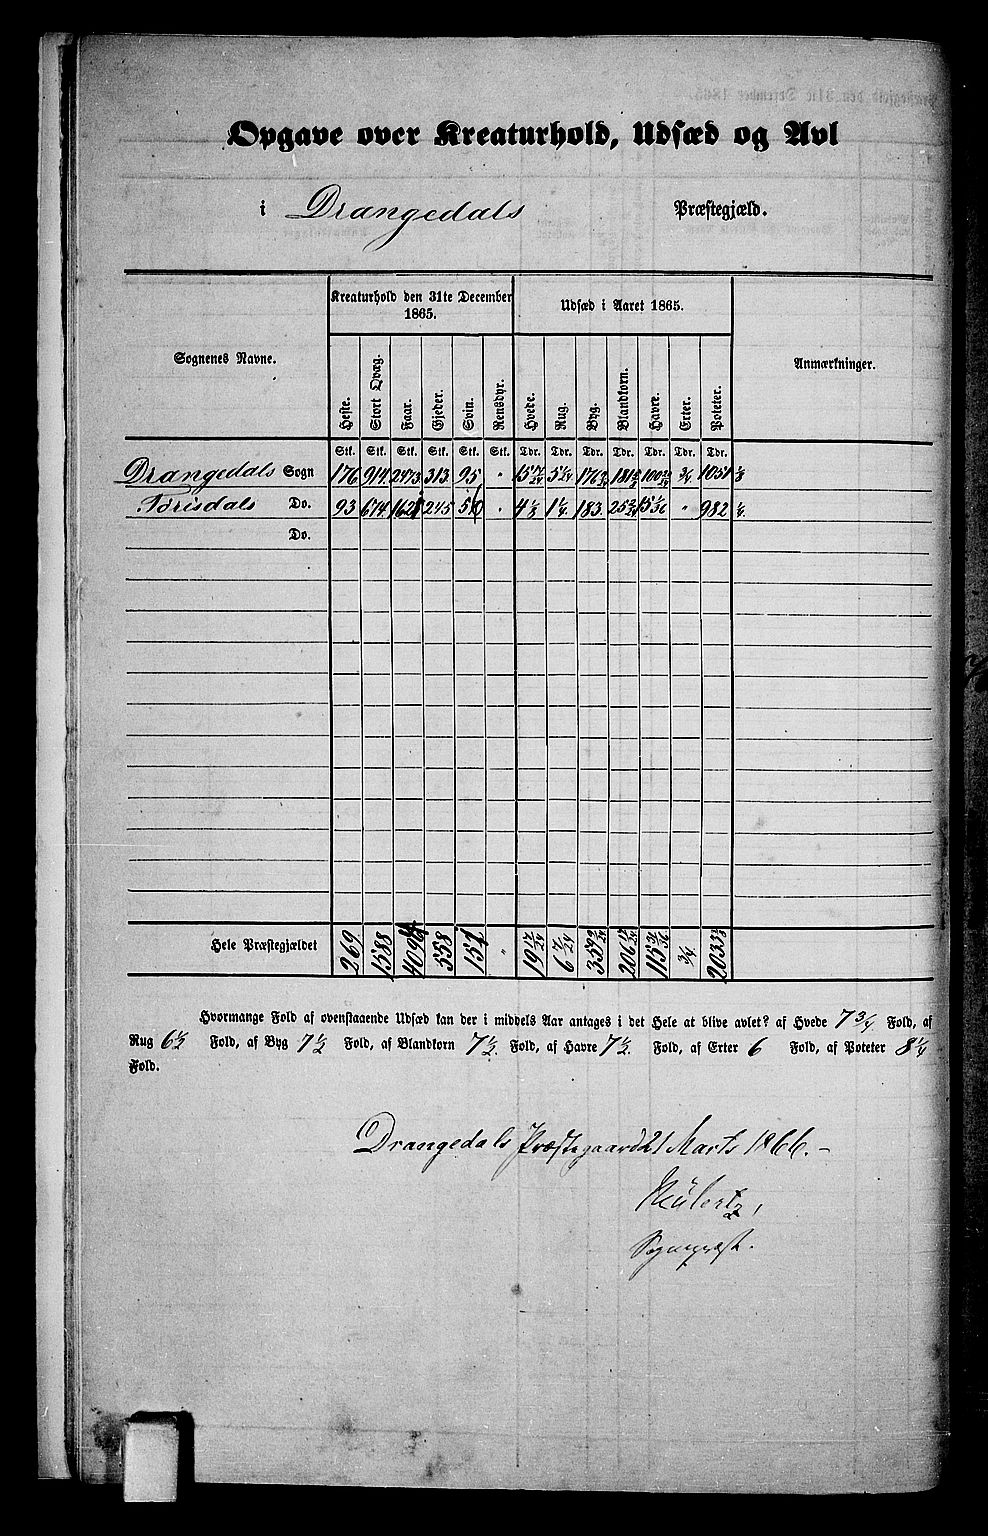 Opgave over Kreaturhold, Udsæd og Avl
i Drangedals Præstegjæld.
Kreaturhold den 31te December 1865.
Udsæd i Aaret 1865.
Sognenes Navne.
Anmærkninger.
Heste. Stort Qvæg. Faar. Gjeder. Svin. Rensdyr. Hvede. Rug. Byg. Blandkorn. Havre. Erter. Poteter.
Stk. Stk. Stk. Stk. Stk. Stk. Tdr. Tdr. Tdr. Tdr. Tdr. Tdr. Tdr.
Drangedals Sogn 176 914 2473 313 95 " 15 17/24 5 1/24 176 181 100 3/4 1051 1/8
Tørisdals Do. 93 674 1621 245 " 4 1 183 25 15 1/36 " 982
Do.
Hele Præstegjældet 269 1588 4094 558 151 " 19 17/24 6 359 206 17/24 115 3/4 2033
Hvormange Fold af ovenstaaende Udsæd kan der i middels Aar antages i det Hele at blive avlet? af Hvede 7 3/4 Fold, af
Rug 6 1/2 Fold, af Byg 7 1/2 Fold, af Blandkorn 7 1/2 Fold, af Havre 7 1/2 Fold, af Erter 6 Fold, af Poteter 8 1/4
Fold.
Drangedals Præstegaard 21 Marts 1866.-
Sognepræst.